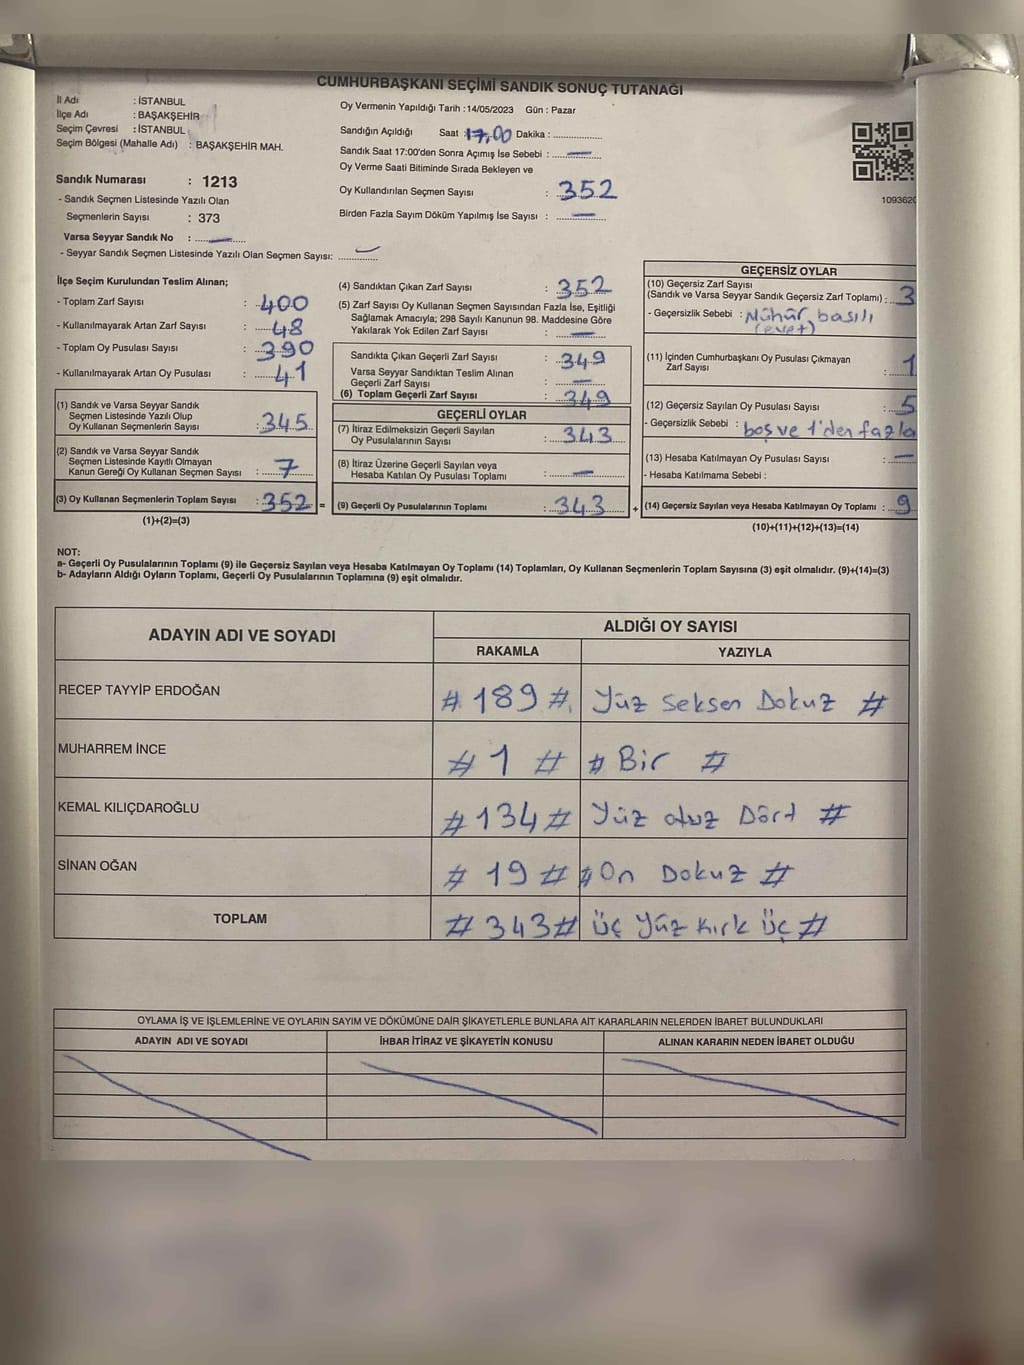 CUMHURBAŞKANI SEÇİMİ SANDIK SONUÇ TUTANAĞI
İl Adı : İSTANBUL
İlçe Adı : BAŞAKŞEHİR
Seçim Çevresi : İSTANBUL
Seçim Bölgesi (Mahalle Adı) : BAŞAKŞEHİR MAH.
Sandık Numarası : 1213
- Sandık Seçmen Listesinde Yazılı Olan
Seçmenlerin Sayısı : 373
Varsa Seyyar Sandık No : —
- Seyyar Sandık Seçmen Listesinde Yazılı Olan Seçmen Sayısı: —
Oy Vermenin Yapıldığı Tarih :14/05/2023 Gün : Pazar
Sandığın Açıldığı Saat : 17,00 Dakika :
Sandık Saat 17:00'den Sonra Açımış İse Sebebi : —
Oy Verme Saati Bitiminde Sırada Bekleyen ve
Oy Kullandırılan Seçmen Sayısı : 352
Birden Fazla Sayım Döküm Yapılmış İse Sayısı : —
1093620
İlçe Seçim Kurulundan Teslim Alınan;
- Toplam Zarf Sayısı : 400
- Kullanılmayarak Artan Zarf Sayısı : 48
- Toplam Oy Pusulası Sayısı : 390
- Kullanılmayarak Artan Oy Pusulası : 41
(1) Sandık ve Varsa Seyyar Sandık
Seçmen Listesinde Yazılı Olup
Oy Kullanan Seçmenlerin Sayısı : 345
(2) Sandık ve Varsa Seyyar Sandık
Seçmen Listesinde Kayıtlı Olmayan
Kanun Gereği Oy Kullanan Seçmen Sayısı : 7
(3) Oy Kullanan Seçmenlerin Toplam Sayısı : 352 =
(1)+(2)=(3)
(4) Sandıktan Çıkan Zarf Sayısı : 352
(5) Zarf Sayısı Oy Kullanan Seçmen Sayısından Fazla İse, Eşitliği
Sağlamak Amacıyla; 298 Sayılı Kanunun 98. Maddesine Göre
Yakılarak Yok Edilen Zarf Sayısı : —
Sandıkta Çıkan Geçerli Zarf Sayısı : 349
Varsa Seyyar Sandıktan Teslim Alınan
Geçerli Zarf Sayısı : —
(6) Toplam Geçerli Zarf Sayısı : 349
GEÇERLİ OYLAR
(7) İtiraz Edilmeksizin Geçerli Sayılan
Oy Pusulalarının Sayısı : 343
(8) İtiraz Üzerine Geçerli Sayılan veya
Hesaba Katılan Oy Pusulası Toplamı : —
(9) Geçerli Oy Pusulalarının Toplamı : 343 +
GEÇERSİZ OYLAR
(10) Geçersiz Zarf Sayısı
(Sandık ve Varsa Seyyar Sandık Geçersiz Zarf Toplamı) : 3
- Geçersizlik Sebebi : Mühür basılı
(evet)
(11) İçinden Cumhurbaşkanı Oy Pusulası Çıkmayan
Zarf Sayısı : 1
(12) Geçersiz Sayılan Oy Pusulası Sayısı : 5
- Geçersizlik Sebebi : boş ve 1'den fazla
(13) Hesaba Katılmayan Oy Pusulası Sayısı : —
- Hesaba Katılmama Sebebi :
(14) Geçersiz Sayılan veya Hesaba Katılmayan Oy Toplamı : 9
(10)+(11)+(12)+(13)=(14)
NOT:
a- Geçerli Oy Pusulalarının Toplamı (9) ile Geçersiz Sayılan veya Hesaba Katılmayan Oy Toplamı (14) Toplamları, Oy Kullanan Seçmenlerin Toplam Sayısına (3) eşit olmalıdır. (9)+(14)=(3)
b- Adayların Aldığı Oyların Toplamı, Geçerli Oy Pusulalarının Toplamına (9) eşit olmalıdır.
ADAYIN ADI VE SOYADI ALDIĞI OY SAYISI
RAKAMLA YAZIYLA
RECEP TAYYİP ERDOĞAN # 189 # Yüz Seksen Dokuz #
MUHARREM İNCE # 1 # # Bir #
KEMAL KILIÇDAROĞLU # 134 # Yüz otuz Dört #
SİNAN OĞAN # 19 # # On Dokuz #
TOPLAM # 343 # Üç Yüz Kırk Üç #
OYLAMA İŞ VE İŞLEMLERİNE VE OYLARIN SAYIM VE DÖKÜMÜNE DAİR ŞİKAYETLERLE BUNLARA AİT KARARLARIN NELERDEN İBARET BULUNDUKLARI
ADAYIN ADI VE SOYADI İHBAR İTİRAZ VE ŞİKAYETİN KONUSU ALINAN KARARIN NEDEN İBARET OLDUĞU